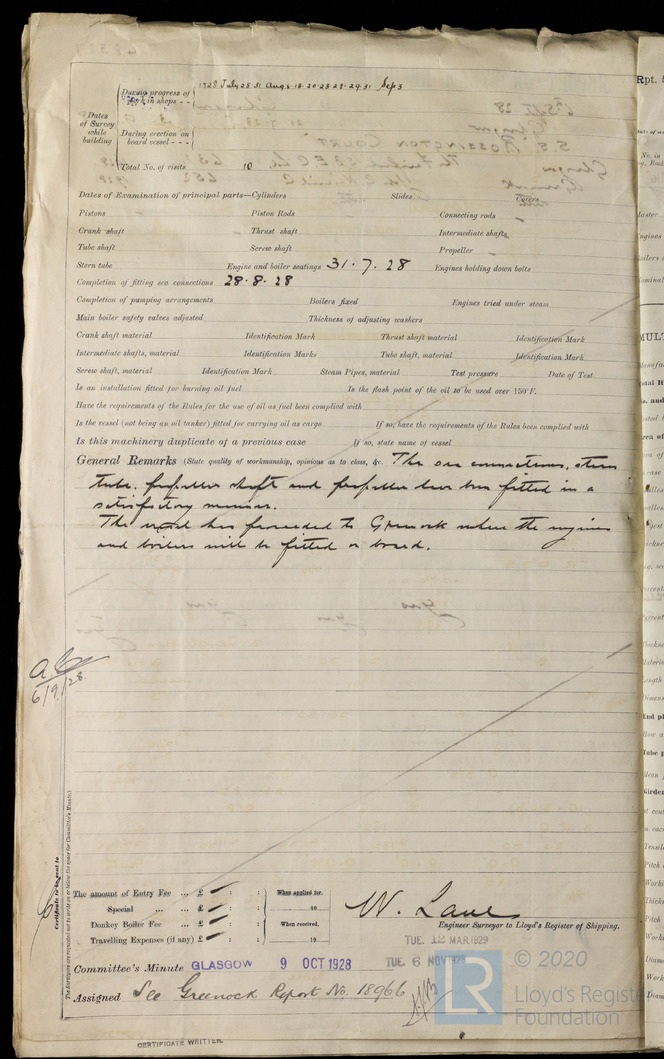 1928 July 28.31 Aug 8.18.20.25 28.29.31 Sep 5
During progress of
work in shops - -
Dates
of Survey
while
building
During erection on
board vessel - - -
Total No. of visits 10
Dates of Examination of principal parts—Cylinders Slides Covers
Pistons Piston Rods Connecting rods
Crank shaft Thrust shaft Intermediate shafts
Tube shaft Screw shaft Propeller
Stern tube Engine and boiler seatings 31.7.28 Engines holding down bolts
Completion of fitting sea connections 28.8.28
Completion of pumping arrangements Boilers fixed Engines tried under steam
Main boiler safety valves adjusted Thickness of adjusting washers
Crank shaft material Identification Mark Thrust shaft material Identification Mark
Intermediate shafts, material Identification Marks Tube shaft, material Identification Mark
Screw shaft, material Identification Mark Steam Pipes, material Test pressure Date of Test
Is an installation fitted for burning oil fuel Is the flash point of the oil to be used over 150°F.
Have the requirements of the Rules for the use of oil as fuel been complied with
Is the vessel (not being an oil tanker) fitted for carrying oil as cargo If so, have the requirements of the Rules been complied with
Is this machinery duplicate of a previous case If so, state name of vessel
General Remarks (State quality of workmanship, opinions as to class, &c. The sea connections, stern
tube, propeller shaft and propeller have been fitted in a
satisfactory manner.
The vessel has proceeded to Greenock where the engines
and boilers will be fitted on board.
6/9/28.
Certificate to be sent to
The amount of Entry Fee ... £ : : When applied for,
Special ... ... £ : : 19
Donkey Boiler Fee ... £ : : When received,
Travelling Expenses (if any) £ : : 19
W. Lane
Engineer Surveyor to Lloyd's Register of Shipping.
TUE. 12 MAR 1929
TUE. 6 NOV 1928
Committee's Minute GLASGOW 9 OCT 1928
Assigned See Greenock Report No. 18966
CERTIFICATE WRITTEN
Rpt. 5
LR
© 2020
Lloyd's Register
Foundation